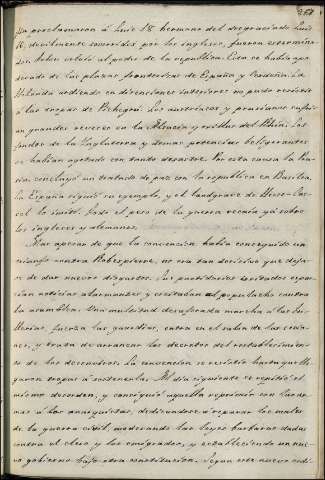 proclamaron á Luis 18 hermano del desgraciado Luis
16, debilmente socorridos por los ingleses, fueron extermina-
dos. Habia al poder de la republica. Esta se habia apo-
derado de las plazas fronterizas de España y Cerdeña. La
Holanda ardiendo en disensiones interiores no pudo resistir
á las tropas de Pichegrú. Los austriacos y prusianos sufrie-
ron grandes reveses en la Alemania y orillas del Rhin. Los
fondos de la Inglaterra y demas potencias beligerantes
se habian agotado con tanto desastre. Por esta causa la Pru-
sia concluyó un tratado de paz con la republica en Basilea,
la España siguió su ejemplo, y el landgrave de Hesse-Cas-
sel lo imitó. Todo el peso de la guerra recaia ya sobre
los ingleses y alemanes.
Mas apesar de que la convencion habia conseguido un
triunfo contra Robespierre, no era tan decisivo que deja-
se de dar nuevos disgustos. Sus partidarios irritados espar-
cian noticias alarmantes y excitaban al populacho contra
la asamblea. Una multitud desaforada marcha á las Tu-
llerias, fuerza las guardias, entra en el salon de las sesio-
nes, y trata de arrancar los decretos del restablecimien-
to de los decenviros. La convencion se resistió hasta que lle-
garon tropas á sostenerla. Al dia siguiente se repitió el
mismo desorden, y consiguió aquella reprimir con las ar-
mas á los anarquistas, dedicandose á reparar los males
de la guerra civil, moderando las leyes barbaras dadas
contra el clero y los emigrados, y estableciendo un nue-
vo gobierno bajo otra constitucion. Segun este nuevo codi-